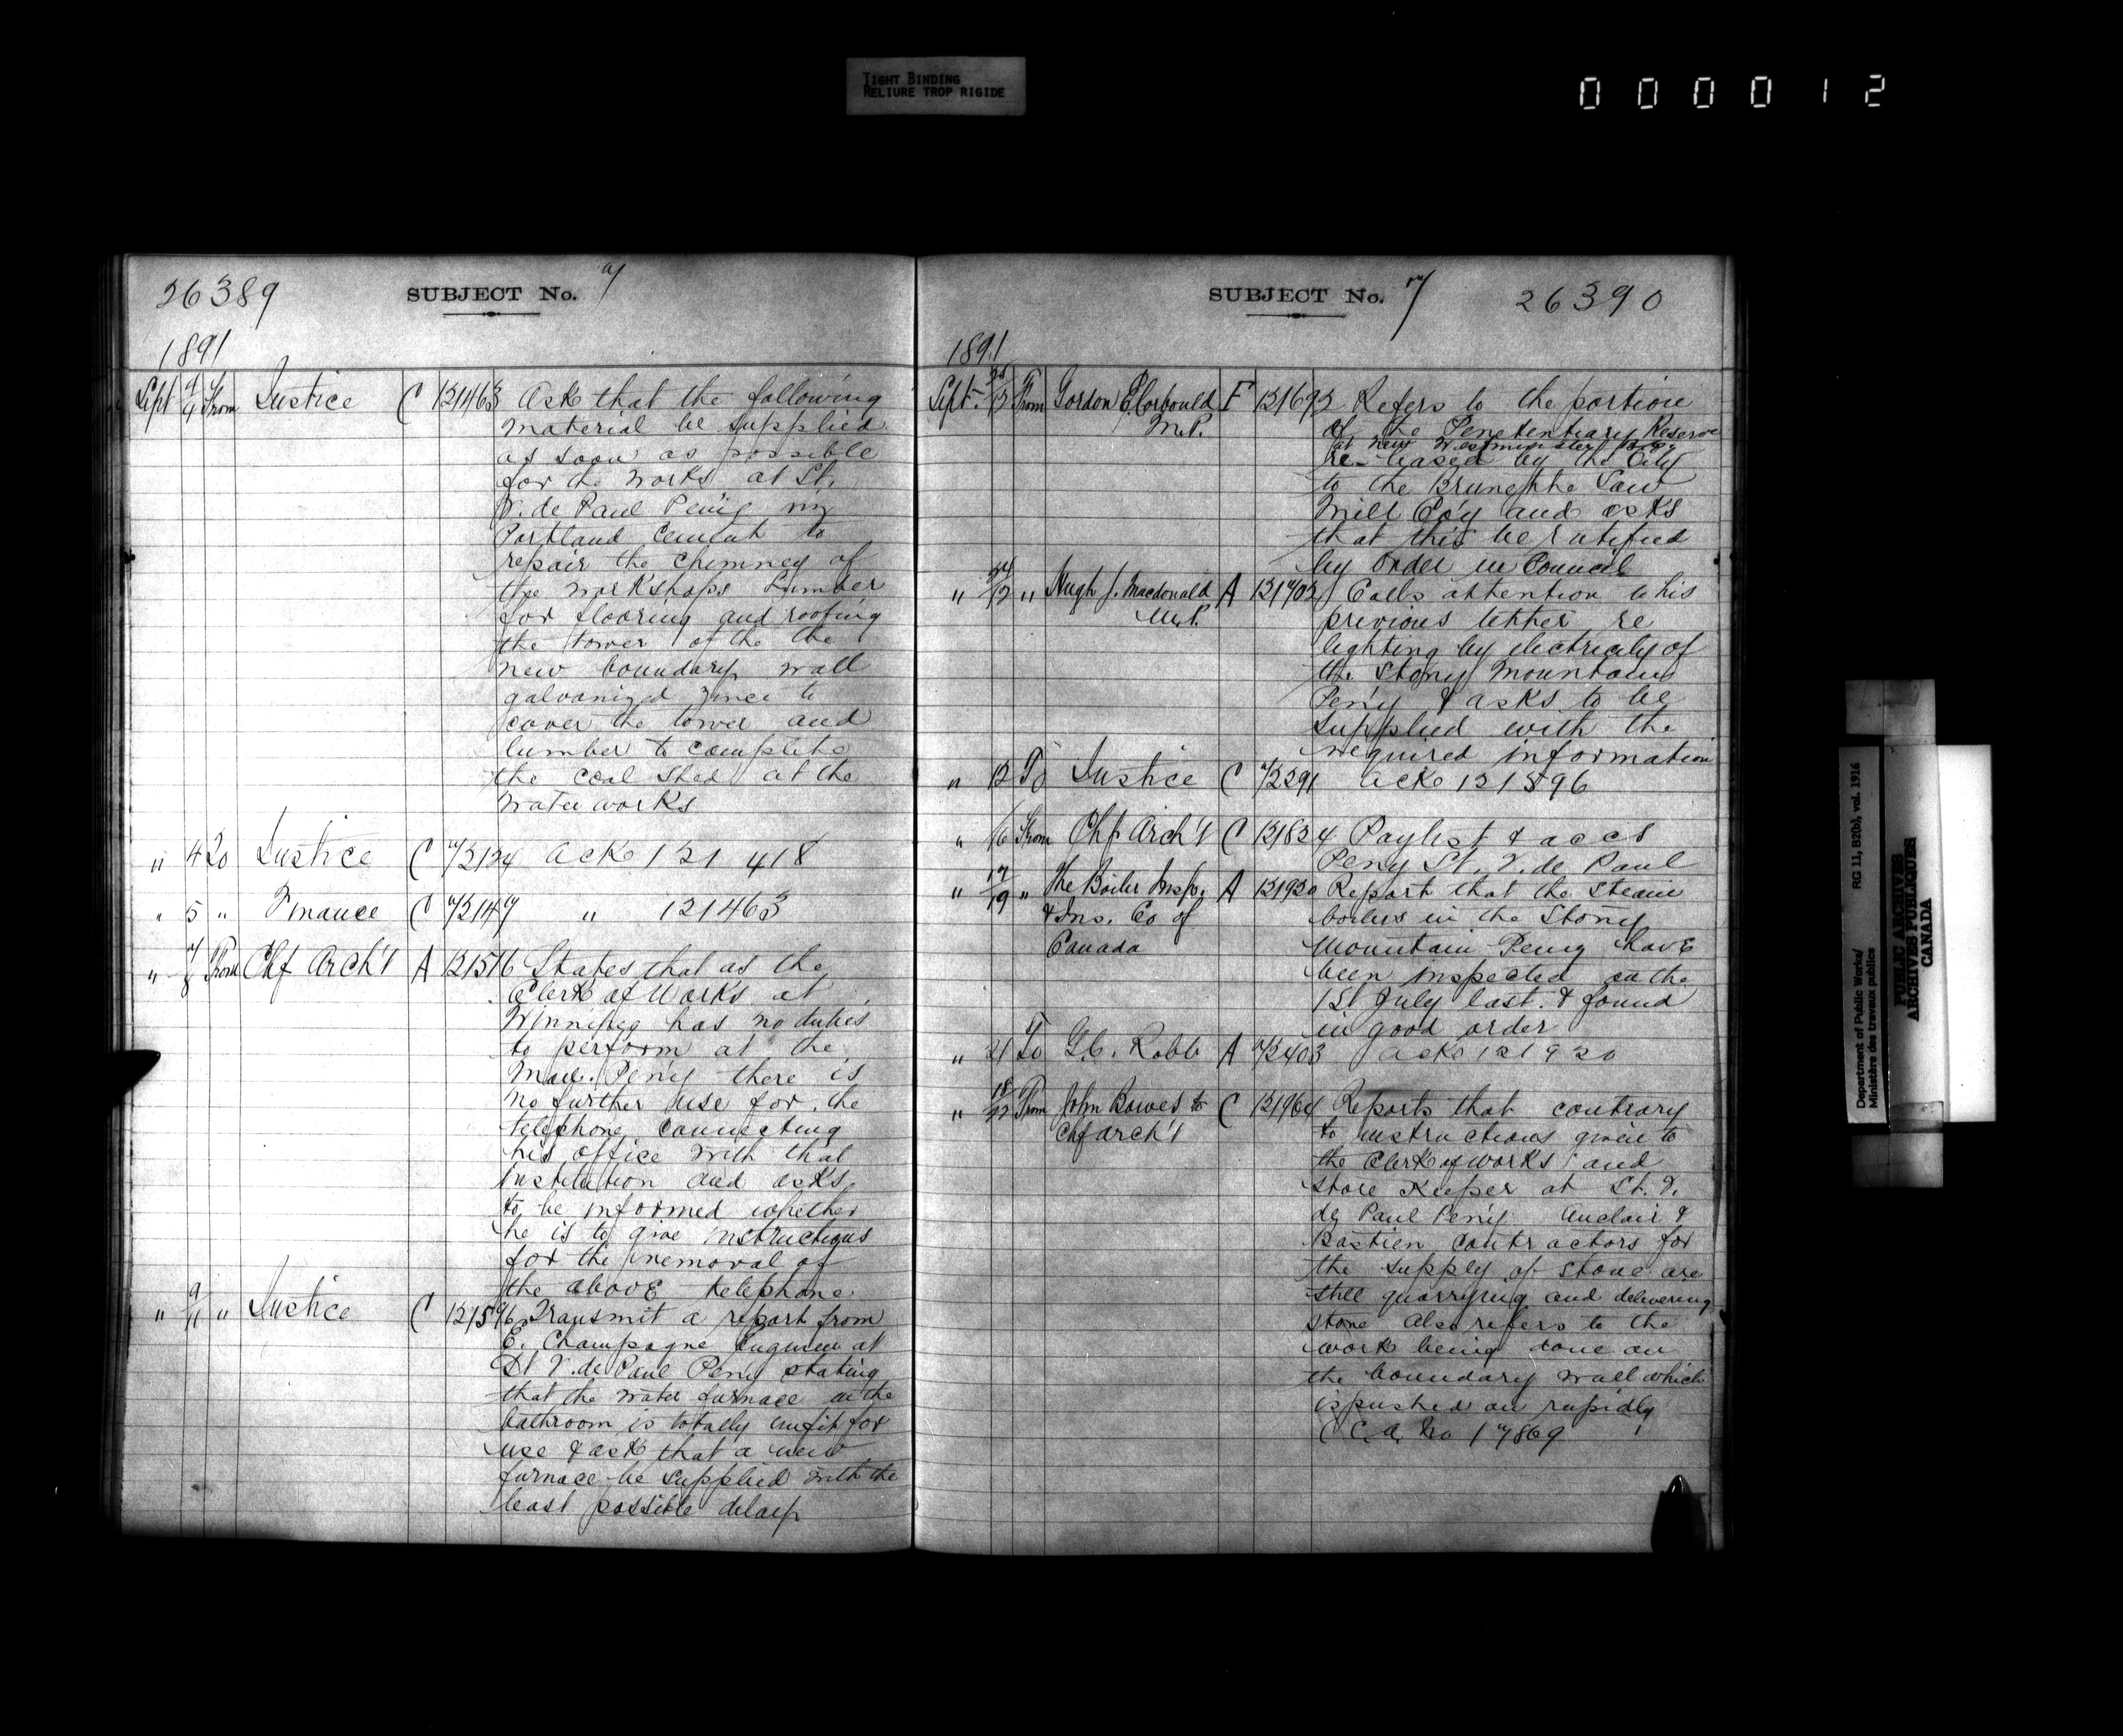 TIGHT BINDING
RELIURE TROP RIGIDE
000012
26389 SUBJECT No. 7
1891
Sept 4 From Justice C 121463 Ask that the following
material be supplied
as soon as possible
for the works at St.
V. de Paul Pen'y viz
Portland Cement to
repair the chimney of
the workshops Lumber
for flooring and roofing
the tower of the the
new boundary wall
galvanized zinc to
cover the tower and
lumber to complete
the coal shed at the
water works
" 4 To Justice C 72124 Ack 121 418
" 5 " Finance C 72147 " 121463
" 7/8 From Chf Arch't A 121516 States that as the
Clerk of Works at
Winnipeg has no duties
to perform at the
Man. Pen'y there is
no further use for the
telephone connecting
his office with that
Institution and asks
to be informed whether
he is to give instructions
for the removal of
the above telephone
" 9/11 " Justice C 121596 Transmit a report from
E. Champagne Engineer at
St V. de Paul Pen'y stating
that the water furnace in the
bathroom is totally unfit for
use & ask that a new
furnace be supplied with the
least possible delay
SUBJECT No. 7 26390
1891
Sept. From Gordon E. Corbould F 121692 Refers to the portion
M.P. of the Penetentiary Reserve
at New Westminster
re-leased by the City
to the Brunette Saw
Mill Co'y and asks
that this be ratified
by order in Council
" " Hugh J. Macdonald A 121702 Calls attention to his
M.P. previous letter re
lighting by electricity of
the Stony Mountain
Pen'y & asks to be
supplied with the
required information
" 12 To Justice C 72291 Ack 121596
" 16 From Chf Arch't C 121824 Paylist & accs
Peny St. V. de Paul
" 17/19 " The Boiler Insp. A 121920 Report that the Steam
& Ins. Co of boilers in the Stony
Canada Mountain Peny have
been inspected on the
1st July last & found
in good order
" 21 To G.C. Robb A 72403 Ack 121920
" 18/22 From John Bowes to C 121964 Reports that contrary
Chf Arch't to instructions given to
the Clerk of works and
store keeper at St. V.
de Paul Pen'y Auclair &
Bastien contractors for
the supply of stone are
still quarrying and delivering
stone Also refers to the
work being done on
the boundary wall which
is pushed on rapidly
C.A. No 17869
Department of Public Works/ RG 11, B2(b), vol. 1916
Ministère des travaux publics
PUBLIC ARCHIVES
ARCHIVES PUBLIQUES
CANADA